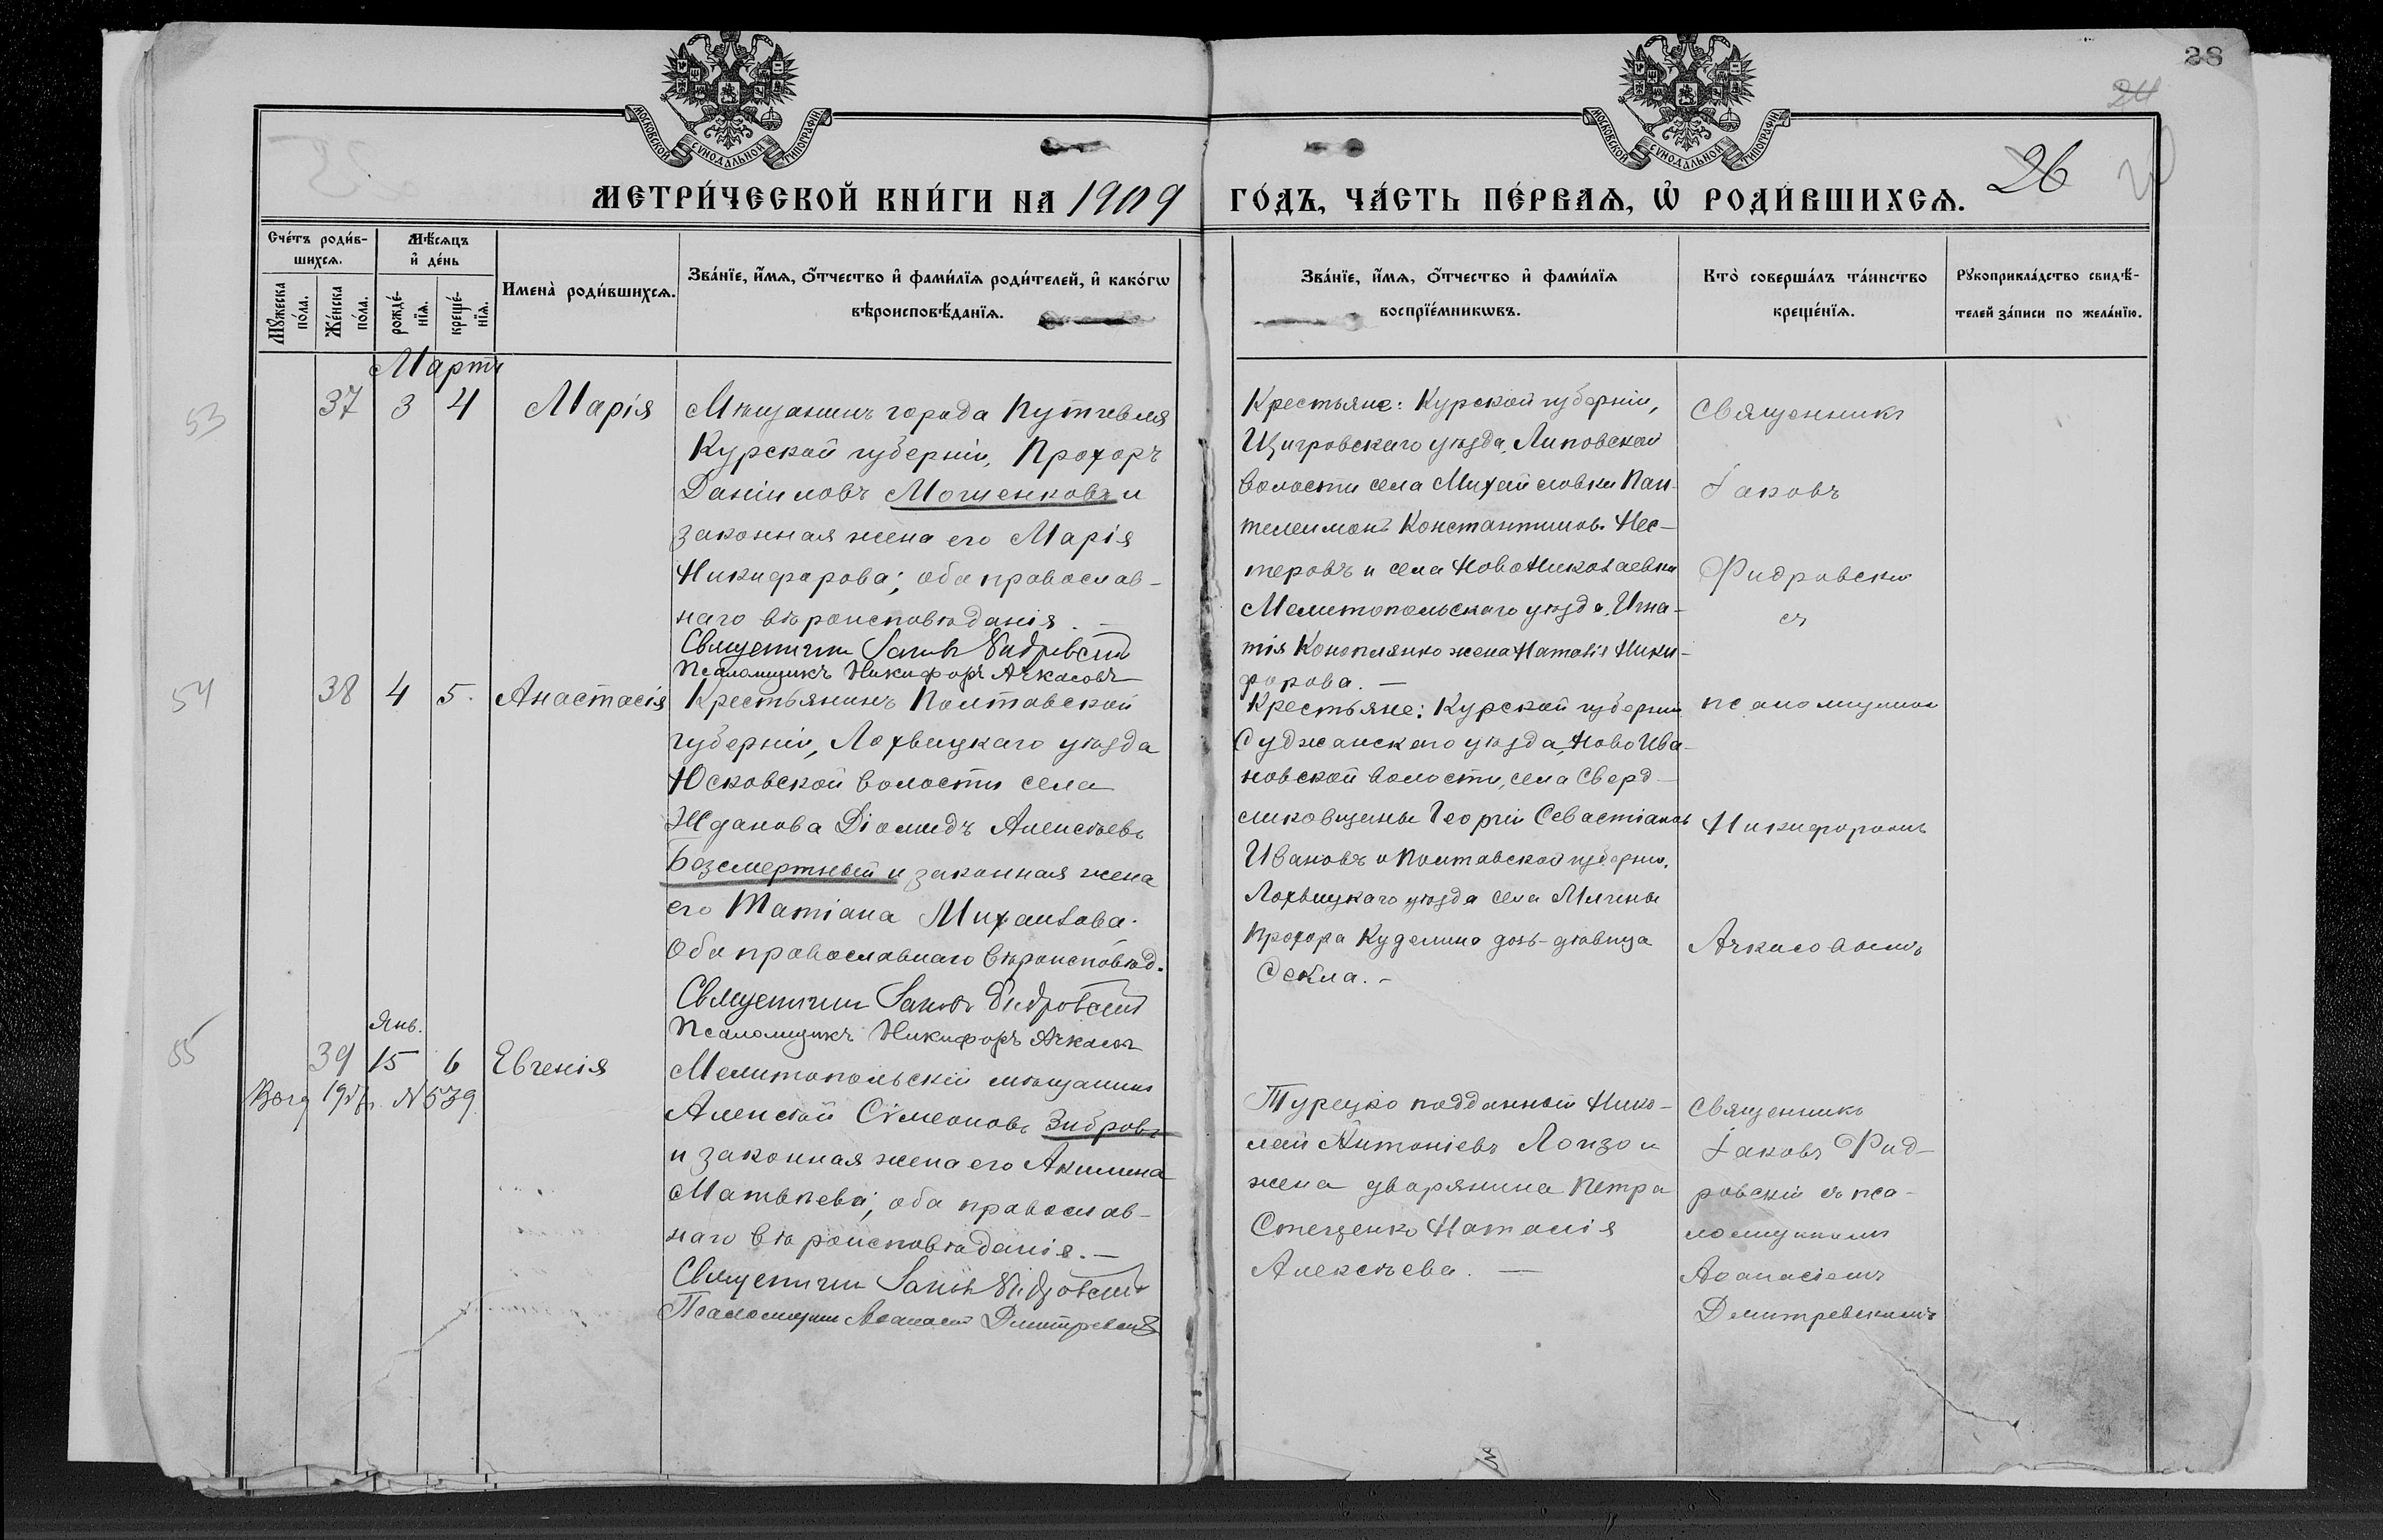 28
24
26
МОСКОВСКОЙ СѴНОДАЛЬНОЙ ТИПОГРАФІИ
МОСКОВСКОЙ СѴНОДАЛЬНОЙ ТИПОГРАФІИ
МЕТРИ́ЧЕСКОЙ КНИ́ГИ НА 1909 ГО́ДЪ, ЧА́СТЬ ПЕ́РВАѦ, Ѡ҆ РОДИ́ВШИХСѦ.
Сче́тъ роди́в-
шихсѧ.
Мѣ́сѧцъ
и҆ де́нь
Мꙋ́жеска
по́ла.
Же́нска
по́ла.
рожде́-
нїѧ.
креще́-
нїѧ.
Имена̀ роди́вшихсѧ.
Зва́нїе, и҆́мѧ, ѻ҆́тчество и҆ фами́лїѧ роди́телей, и҆ како́гѡ
вѣроисповѣ́данїѧ.
Зва́нїе, и҆́мѧ, ѻ҆́тчество и҆ фами́лїѧ
воспрїе́мникѡвъ.
Кто̀ соверша́лъ та́инство
креще́нїѧ.
Рꙋкоприкла́дство свидѣ́-
телей за́писи по жела́нїю.
Мартъ
53
37 3 4 Марія
Мѣщанинъ города Путивля
Курской губерніи, Прохоръ
Даніиловъ Мошенковъ и
законная жена его Марія
Никифорова; оба православ-
наго вѣроисповѣданія. —
Священникъ Іаковъ Фидровскій
Псаломщикъ Никифоръ Ачкасовъ
Крестьяне: Курской губерніи,
Щигровскаго уѣзда, Липовской
волости села Михайловки Пан-
телеимонъ Константиновъ Нес-
теровъ и села НовоНиколаевки
Мелитопольскаго уѣзда, Игна-
тія Конопляно жена Наталія Ники-
форова. —
Священникъ
Іаковъ
Фидровскій
съ
54
38 4 5. Анастасія
Крестьянинъ Полтавской
губерніи, Лохвицкаго уѣзда
Юсковской волости села
Жданова Діомидъ Алексѣевъ
Безсмертный и законная жена
его Татіана Михаилова.
Оба православнаго вѣроисповѣд.
Священникъ Іаковъ Фидровскій
Псаломщикъ Никифоръ Ачкасовъ
Крестьяне: Курской губерніи
Суджанскаго уѣзда, НовоИва-
новской волости, села Сверд-
ликовщины Георгій Севастіановъ
Ивановъ и Полтавской губерніи,
Лохвицкаго уѣзда села Млины
Прохора Куделина дочь-дѣвица
Ѳекла. —
псаломщикомъ
Никифоромъ
Ачкасовымъ
55
Янв.
39 15 6 Евгенія
1957г. № 539
Мелитопольскій мѣщанинъ
Алексѣй Сѵмеоновъ Зибровъ
и законная жена его Акилина
Матвѣева; оба православ-
наго вѣроисповѣданія. —
Священникъ Іаковъ Фидровскій
Псаломщикъ Аѳанасій Дмитревскій
Турецко подданный Нико-
лай Антоніевъ Лонзо и
жена дворянина Петра
Стеценко Наталія
Алексѣева. —
Священникъ
Іаковъ Фид-
ровскій съ пса-
ломщикомъ
Аѳанасіемъ
Дмитревскимъ